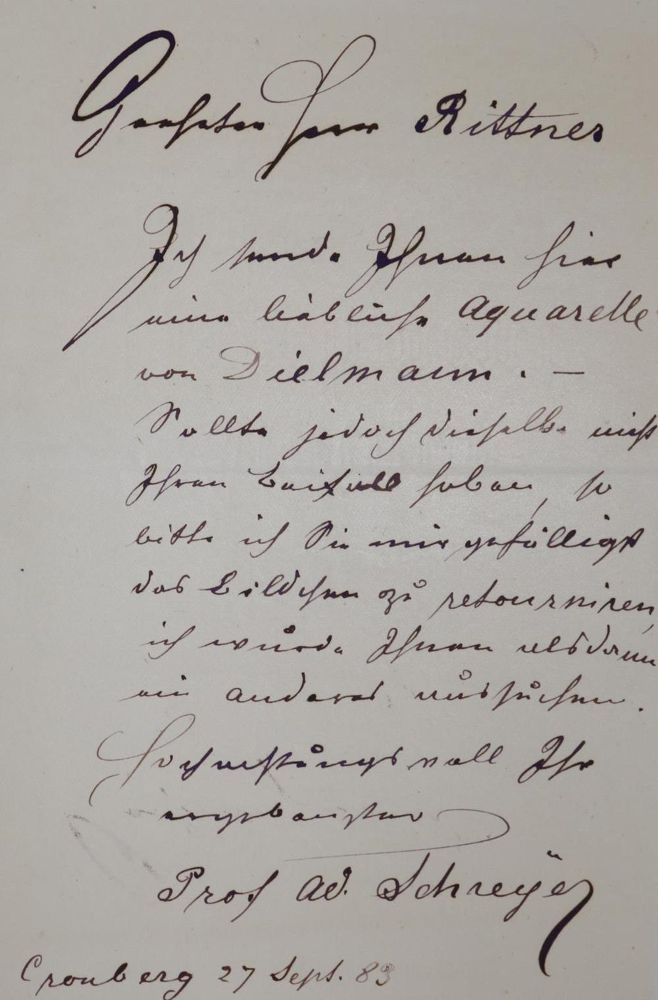 Geehrter Herr Rittner
Ich sende Ihnen hier
eine liebliche Aquarelle
von Dielmann. —
Sollte jedoch dieselbe nicht
Ihren Beifall haben, so
bitte ich Sie mir gefälligst
das Bildchen zu retourniren,
ich würde Ihnen alsdann
ein anderes aussuchen.
Hochachtungsvoll Ihr
ergebenster
Prof Ad. Schreÿer
Cronberg 27 Sept. 83